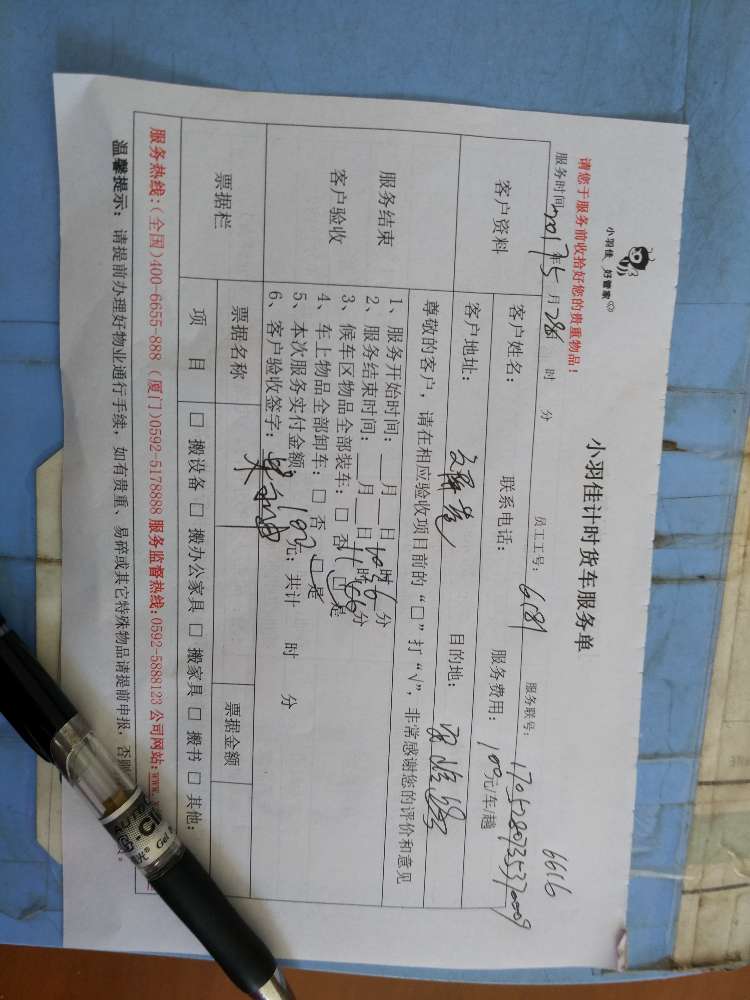 小羽佳 好管家®
小羽佳计时货车服务单
6616
请您于服务前收拾好您的贵重物品！
服务时间 2017年5月28日 时 分 员工工号: 6181 服务联号: 17052807353370009
客户资料
客户姓名: 联系电话: 服务费用: 100元/车/趟
客户地址: 目的地:
服务结束
客户验收
尊敬的客户，请在相应验收项目前的“□”打“√”，非常感谢您的评价和意见
1、服务开始时间: __月__日10时6分
2、服务结束时间: __月__日11时66分
3、候车区物品全部装车: □ 否 □ 是
4、车上物品全部卸车: □ 否 □ 是
5、本次服务实付金额: 100元; 共计 时 分
6、客户验收签字:
票据栏
票据名称 票据金额
项 目 □ 搬设备 □ 搬办公家具 □ 搬家具 □ 搬书 □ 其他:
服务热线:(全国)400-6655-888 (厦门)0592-5178888 服务监督热线:0592-5888123 公司网站:www.
温馨提示: 请提前办理好物业通行手续, 如有贵重、易碎或其它特殊物品请提前申报, 否则
Gel